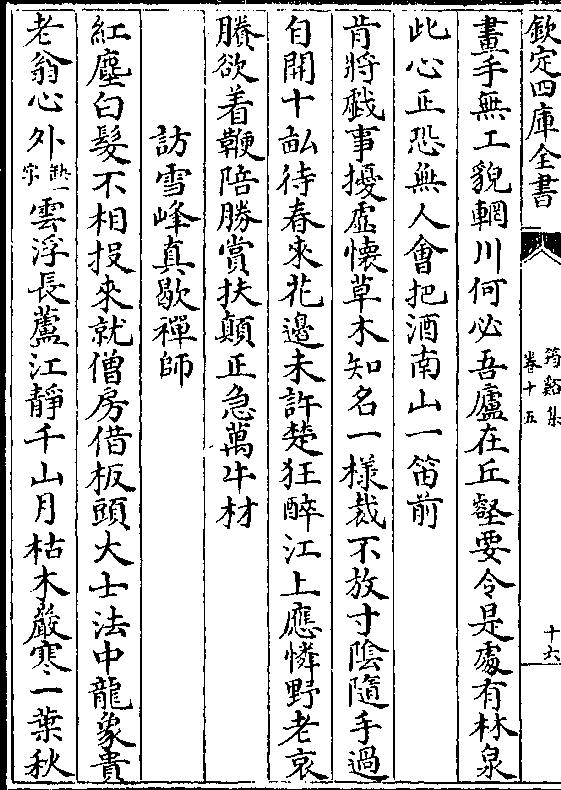 欽定四庫全書
筠谿集
卷十五
十六
畫手無工貌輞川何必吾廬在丘壑要令是處有林泉
此心正恐無人會把酒南山一笛前
肯將戲事擾虛懷草木知名一樣裁不放寸陰隨手過
自開十畝待春來花邊未許楚狂醉江上應憐野老哀
賸欲着鞭陪勝賞扶顛正急萬牛材
訪雪峰真歇禪師
紅塵白髮不相投來就僧房借板頭大士法中龍象貴
老翁心外熱一字雲浮長蘆江靜千山月枯木嚴寒一葉秋